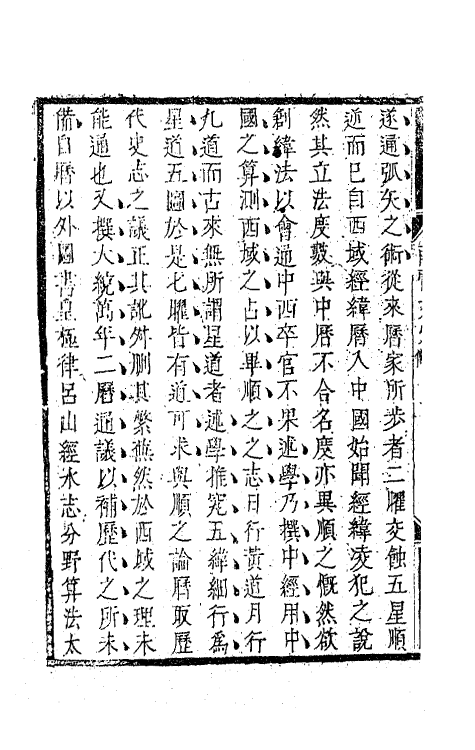 遂通弧矢之術從來曆家所步者二曜交蝕五星順
逆而已自西域經緯曆入中國始聞經緯凌犯之說
然其立法度數與中曆不合名度亦異順之慨然欲
創緯法以會通中西卒官不果述學乃撰中經用中
國之算測西域之占以畢順之之志日行黃道月行
九道而古來無所謂星道者述學推究五緯細行爲
星道五圖於是七曜皆有道可求與順之論曆取歷
代史志之議正其訛舛刪其繁蕪然於西域之理未
能通也又撰大統萬年二曆通議以補歷代之所未
備自曆以外圖書皇極律呂山經水志分野算法太